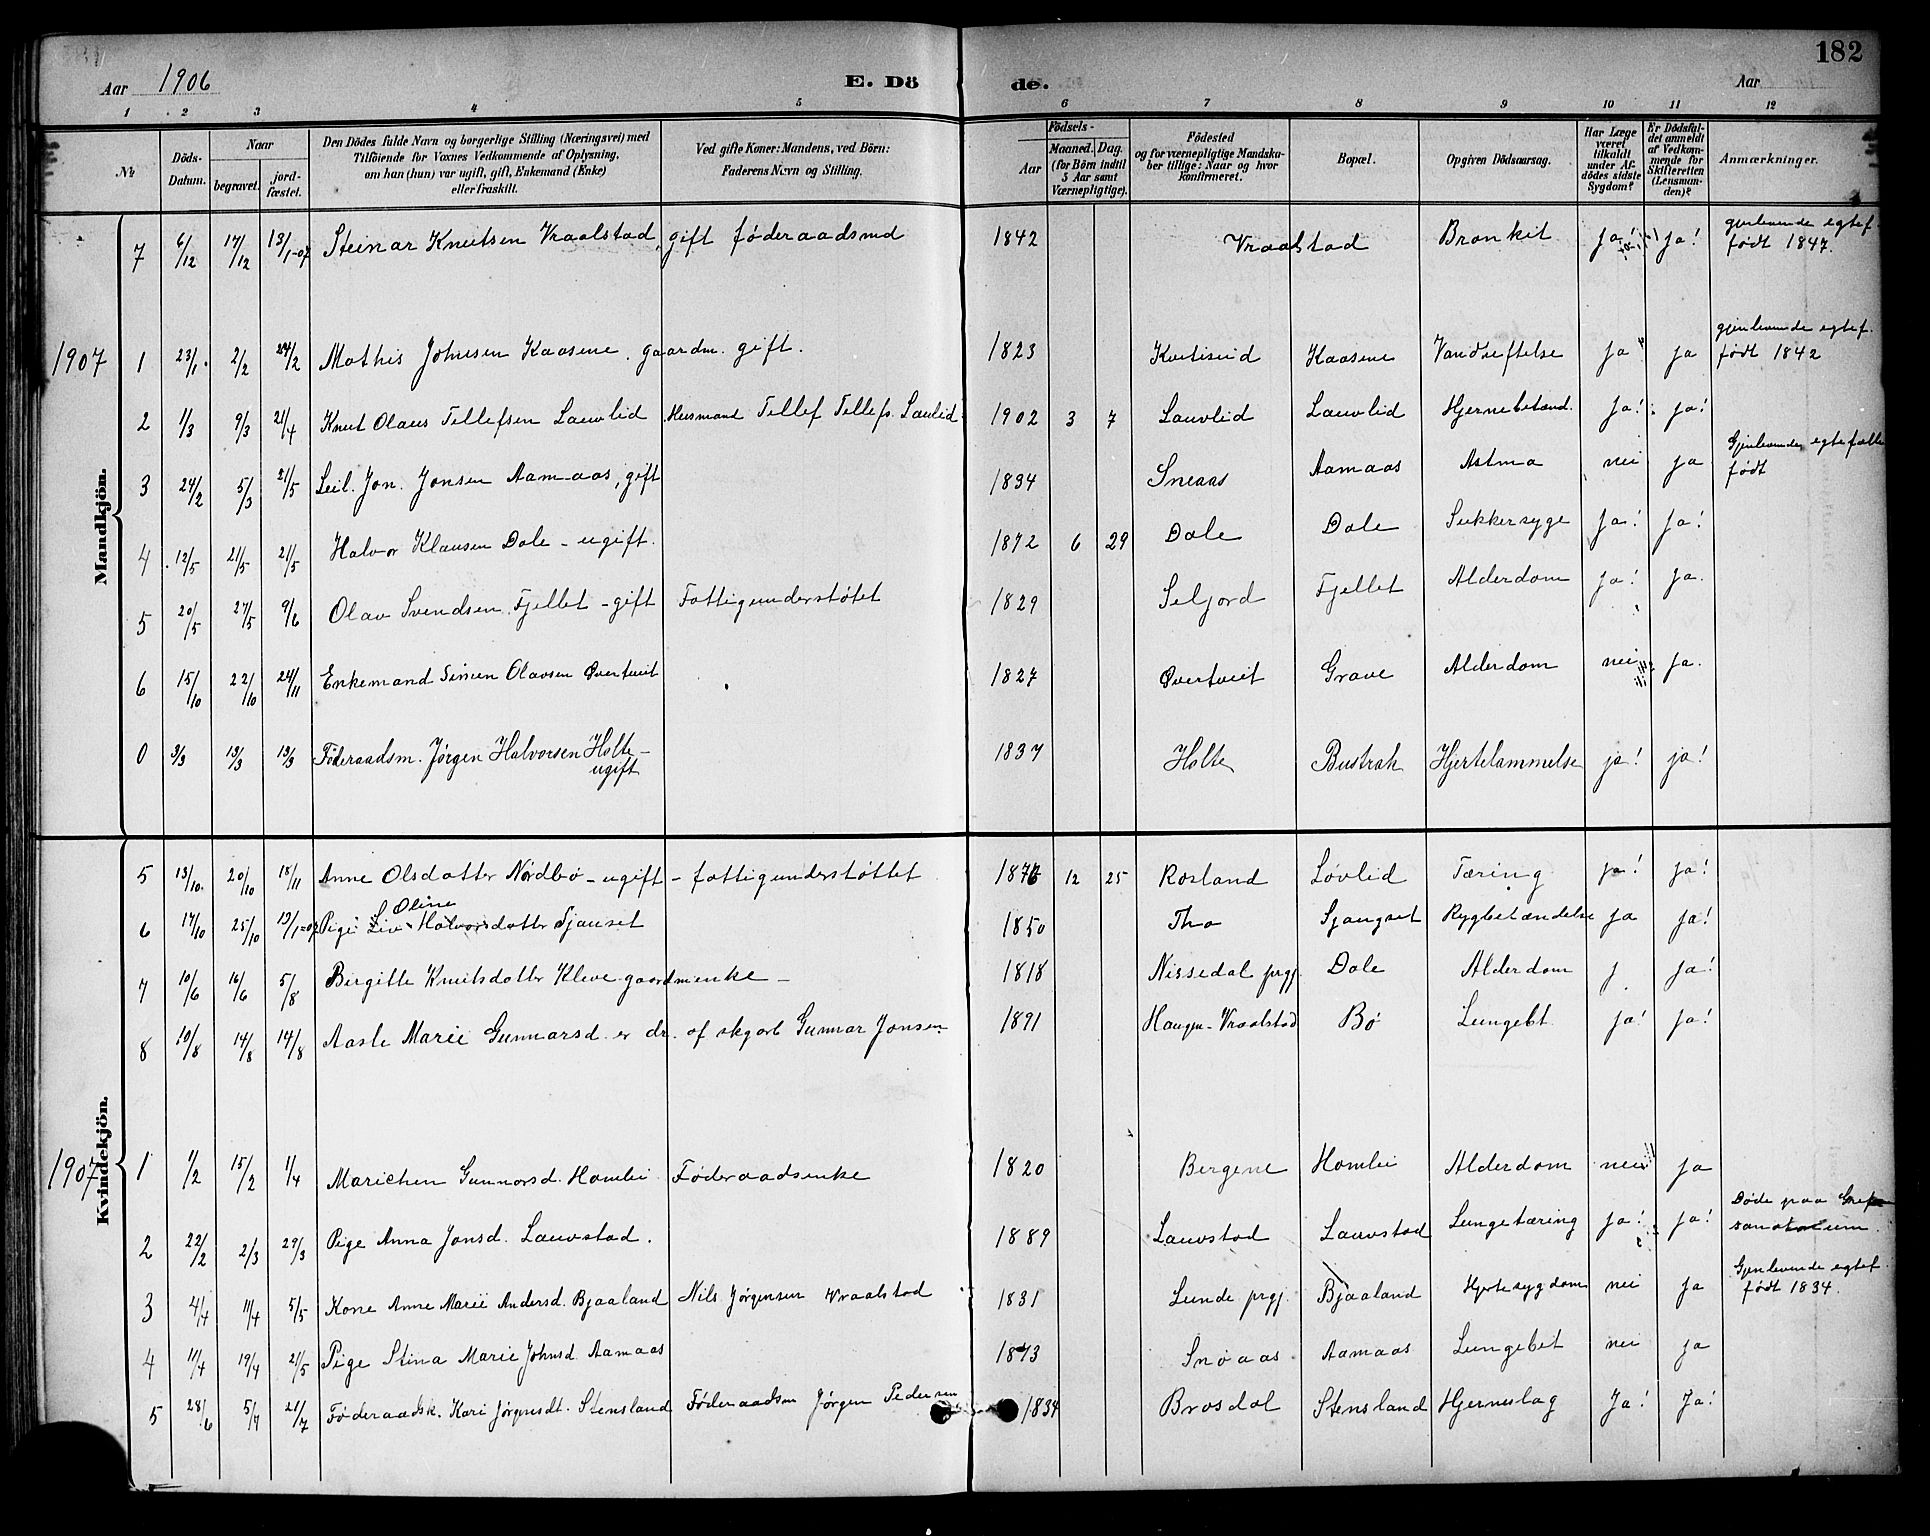 182
Aar 1906 E. Dö de. Aar
1 2 3 4 5 6 7 8 9 10 11 12
№ Döds-Datum. Naar begravet. jord-fæstet. Den Dödes fulde Navn og borgerlige Stilling (Næringsvei) med Tilföiende for Voxnes Vedkommende af Oplysning, om han (hun) var ugift, gift, Enkemand (Enke) eller fraskilt. Ved gifte Koner: Mandens, ved Börn: Faderens Navn og Stilling. Aar Födsels- Maaned. Dag. (for Börn indtil 5 Aar samt Værnepligtige). Födested og for værnepligtige Mandskaber tillige: Naar og hvor konfirmeret. Bopæl. Opgiven Dödsaarsag. Har Læge været tilkaldt under Afdödes sidste Sygdom? Er Dödsfaldet anmeldt af Vedkommende for Skifteretten (Lensmanden)? Anmærkninger.
Mandkjön.
7 6/12 17/12 13/1-07 Steinar Knutsen Vraalstad, gift føderaadsmd 1842 Vraalstad Bronkit ja! ja! gjenlevende egtef. født 1847.
1907 1 23/1. 2/2 24/2 Mathis Johnsen Kaasene, gaardm. gift. 1823 Kvitiseid Kaasene Vandseftelse ja ja gjenlevende egtef. født 1842
2 1/3 9/3 21/4 Knut Olaus Tellefsen Lauvlid Husmand Tellef Tellefs. Lauvlid 1902 3 7 Lauvlid Lauvlid Hjernebetænd. Ja! ja!
3 24/2 5/3 21/5 Leil. Jon. Jonsen Aamaas, gift 1834 Sneaas Aamaas Astma nei ja Gjenlevende egtefælle født
4 12/5 21/5 21/5 Halvor Klausen Dale - ugift. 1872 6 29 Dale Dale Sukkersyge Ja! Ja!
5 20/5 27/5 9/6 Olav Svendsen Fjellet - gift Fattigunderstøtet 1829 Seljord Fjellet Alderdom ja! ja.
6 15/10 22/10 24/11 Enkemand Simen Olavsen Øvertveit 1827 Øvertveit Grave Alderdom nei ja.
0 3/3 13/3 13/3 Føderaadsm. Jørgen Halvorsen Holte - ugift 1837 Holte Bustrak Hjertelammelse ja! ja!
Kvindekjön.
5 13/10. 20/10 18/11 Anne Olsdatter Nordbø - ugift - fattigunderstøttet 1876 12 25 Rosland Løvlid Tæring ja! ja!
6 17/10 25/10 13/1-07 Pige Liv Oline Halvorsdatter Sjauset 1850 Tho Sjangset Rygbetændelse ja ja!
7 10/6 16/6 5/8 Birgitte Knutsdatter Kleve gaardmenke - 1818 Nissedal prgj. Dale Alderdom j ja!
8 10/8 14/8 14/8 Aasle Marie Gunnarsd. er dr. af skgarb Gunnar Jonsen 1891 Haugen-Vraalstad Bø Lungebt. ja! ja!
1907 1 1/2 15/2 1/4 Marichen Gunnarsd. Homlei Føderaadsenke 1820 Bergene Homlei Alderdom nei ja
2 22/2 2/3 29/3 Pige Anna Jonsd. Lauvstad. 1889 Lauvstad Lauvstad Lungetæring ja! ja! Døde paa sanatorium.
3 4/4 11/4 5/5 Kone Anne Marie Andersd. Bjaaland Nils Jørgensen Vraalstad 1831 Lunde prgj. Bjaaland Hjertesygdom nei ja Gjenlevende egtef. født 1834.
4 11/4 19/4 21/5 Pige Stina Marie Johnsd. Aamaas 1873 Snøaas Aamaas Lungebet nei ja
5 28/6 5/7 21/7 Føderaadsk. Kari Jørgensdt. Stensland Føderaadsm Jørgen Pedersen 1834 Brosdal Stensland Hjerneslag Ja! Ja!